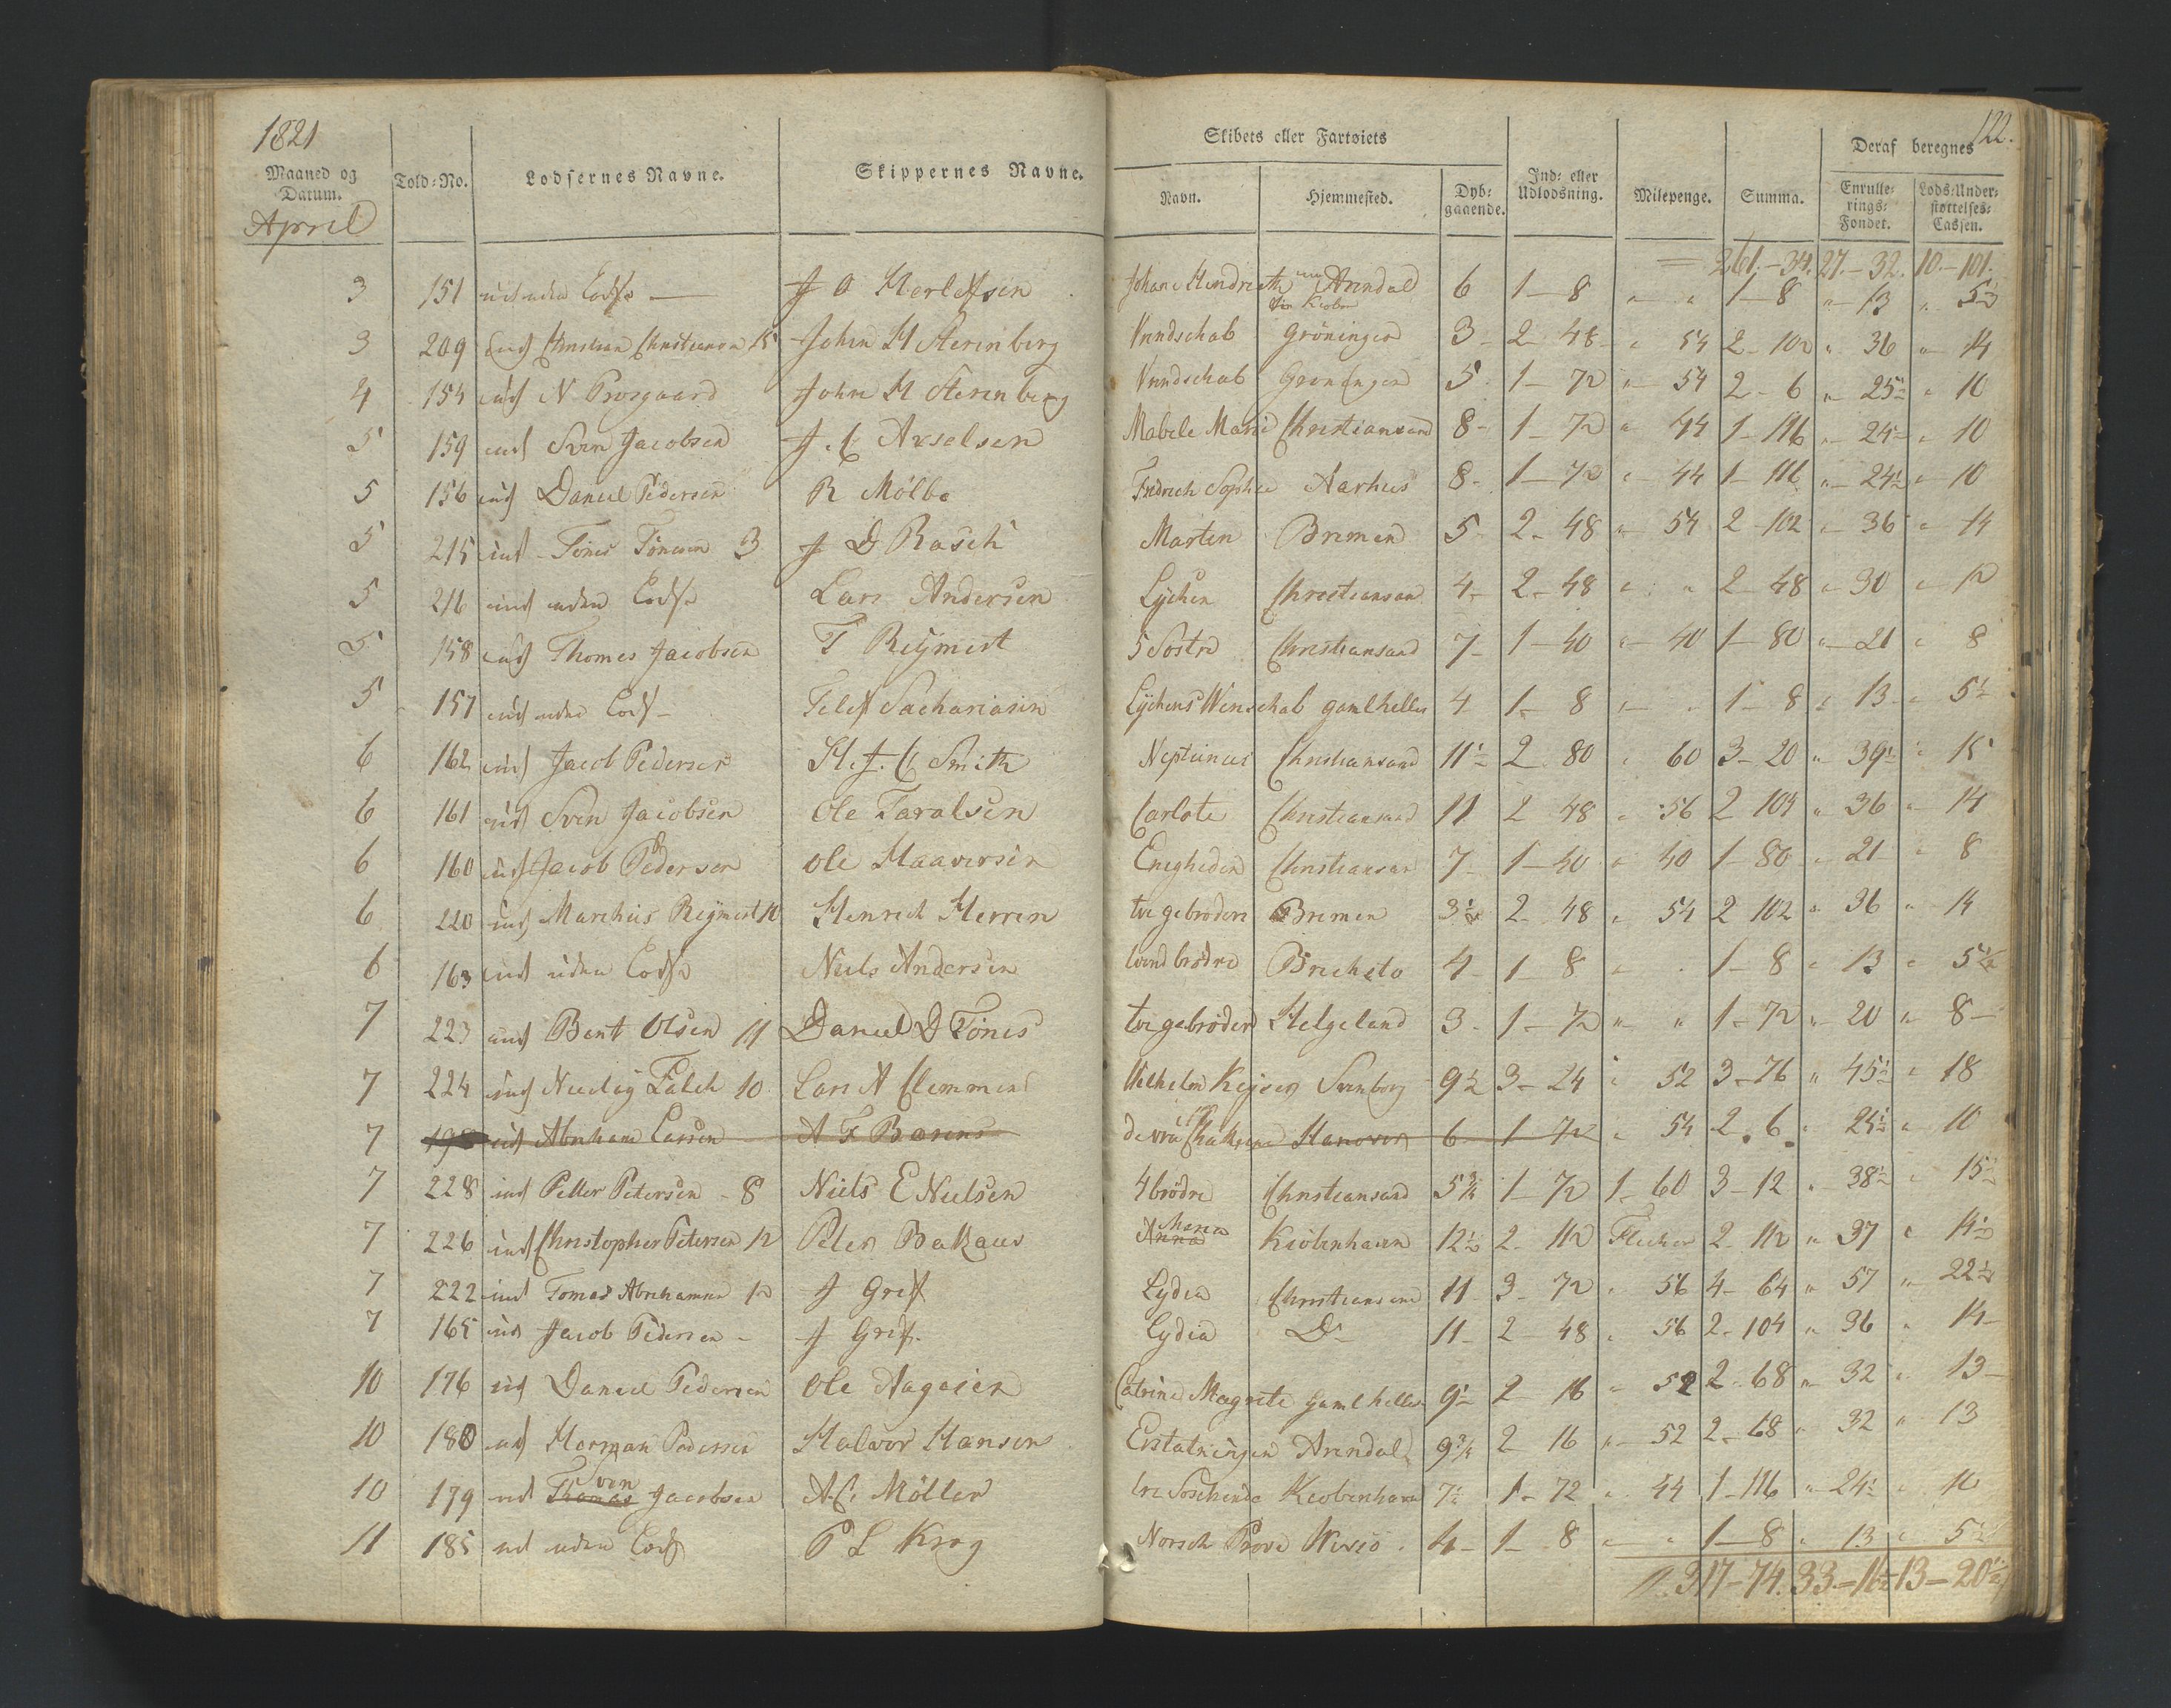 1821
122.
Skibets eller Fartøiets
Deraf beregnes
Maaned og Datum.
Told-No.
Lodsernes Navne.
Skippernes Navne.
Navn.
Hjemmested.
Dyb-gaaende.
Ind- eller Udlodsning.
Milepenge.
Summa.
Enrulle-rings-Fondet.
Lods-Under-støttelses-Cassen.
April
261 - 34. 27. - 32. 10. - 101.
3 151 ud uden Lods — J O Herlofsen Johane Hendriette Arendal 6 1 - 8 " " 1 - 8 " 13 " 5½
3 209 ind Christian Christiansen 15 Johan H Sterenberg Vundschab Gröningen 3 - 2 - 48 - " 54 2 - 102 " 36 " 14
4 154 ud N Prosgaard Johan H Sterenberg Vundschab Groningen 5 - 1 - 72 " 54 2 - 6 " 25½ " 10
5 159 ud Sven Jacobsen J. C Axselsen Mabele Marie Christiansand 8 - 1 - 72 " 44 1 - 116 " 24½ " 10
5 156 ud Daniel Pedersen R Mölbo Fridrich Sophie Aarhus 8 - 1 - 72 " 44 1 - 116 " 24½ " 10
5 215 ind Tönes Tönesen 3 J D Rasch Marten Bremen 5 - 2 - 48 " 54 2 - 102 " 36 " 14
5 216 ind uden Lods Lars Andersen Lychen Christiansan 4 - 2 - 48 " " 2 - 48 " 30 " 12
5 158 ud Thomes Jacobsen T Reymert 5 Sostre Christiansand 7 - 1 - 40 " 40 1 - 80 " 21 " 8
5 157 ud uden Lods - Tellef Sachariasen Lychens Venschab gamlhelles 4 1 - 8 " " 1 - 8 " 13 - " 5½
6 162 ud Jacob Pedersen H. J. C Smith Neptunus Christiansand 11½ 2 80 " 60 3 - 20 " 39½ " 15
6 161 ud Sven Jacobsen Ole Taralsen Carlote Christiansand 11 2 48 " 56 2 104 " 36 " 14
6 160 ud Jacob Pedersen Ole Haaversen Enegheden Christiansan 7 - 1 - 40 " 40 1 - 80 " 21 " 8
6 220 ind Marchus Reymert 10 Henrich Herren tve gebrodere Bremen 3½ 2 - 48 " 54 2 102 " 36 " 14
6 163 ud uden Lods Niels Andersen brödre Brechsto 4 - 1 8 " " 1 - 8 " 13 " 5½
7 223 ind Bent Olsen 11 Daniel D Tönes tve gebröder Helgeland 3 - 1 - 72 " " 1 - 72 " 20 " 8 -
7 224 ind Falch 10 Lars A Clemmens Wilhelm Keyser Svenborg 9½ 3 - 24 " 52 3 - 76 " 45½ " 18
7 198 ud Abraham Larsen A F Barens de vrou Hanover 6 1 72 " 54 2. 6. " 25½ " 10
7 228 ind Petter Petersen - 8 Niels E Nielsen 4 brödre Christiansand 5¾ 1 - 72 1 - 60 3 - 12 " 38½ " 15½
7 226 ind Christopher Petersen 12 Peter Bakaus Anna Maria Kiöbenhavn 12½ 2 - 112 Flecker 2 - 112 " 37 " 14½
7 222 ind Tomas Abrahamsen 12 J Greif Lydia Christiansand 11 3 - 72 " 56 4 - 64 " 57 " 22½
7 165 ud Jacob Pedersen - J Greif. Lydia Do 11 - 2 - 48 " 56 2 - 104 " 36 " 14 -
10 176 ud Daniel Pedersen Ole Aagesen Catrine Magrete gamlhelles 9½ 2 - 16 " 52 2 - 68 " 32 " 13 -
10 180 ud Herman Pedersen Halvor Hansen Erstatningen Arendal 9¾ 2 16 " 52 2 - 68 " 32 " 13
10 179 ud Thomas Sven Jacobsen A. C. Möller tre Soschende Kiobenhavn 7½ 1 - 72 " 44 1 - 116 " 24½ " 10
11 185 ud uden Lods P L Krog Norsch Prove 4 - 1 - 8 " " 1 - 8 " 13 " 5½
317 - 74. 33. - 16½ 13 - 20½